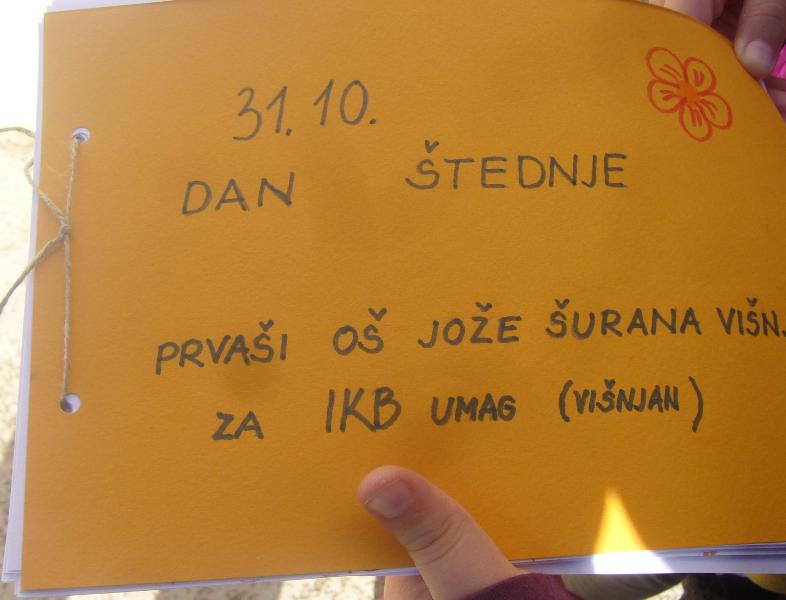 31. 10.
DAN ŠTEDNJE
PRVAŠI OŠ JOŽE ŠURANA VIŠN.
ZA IKB UMAG (VIŠNJAN)